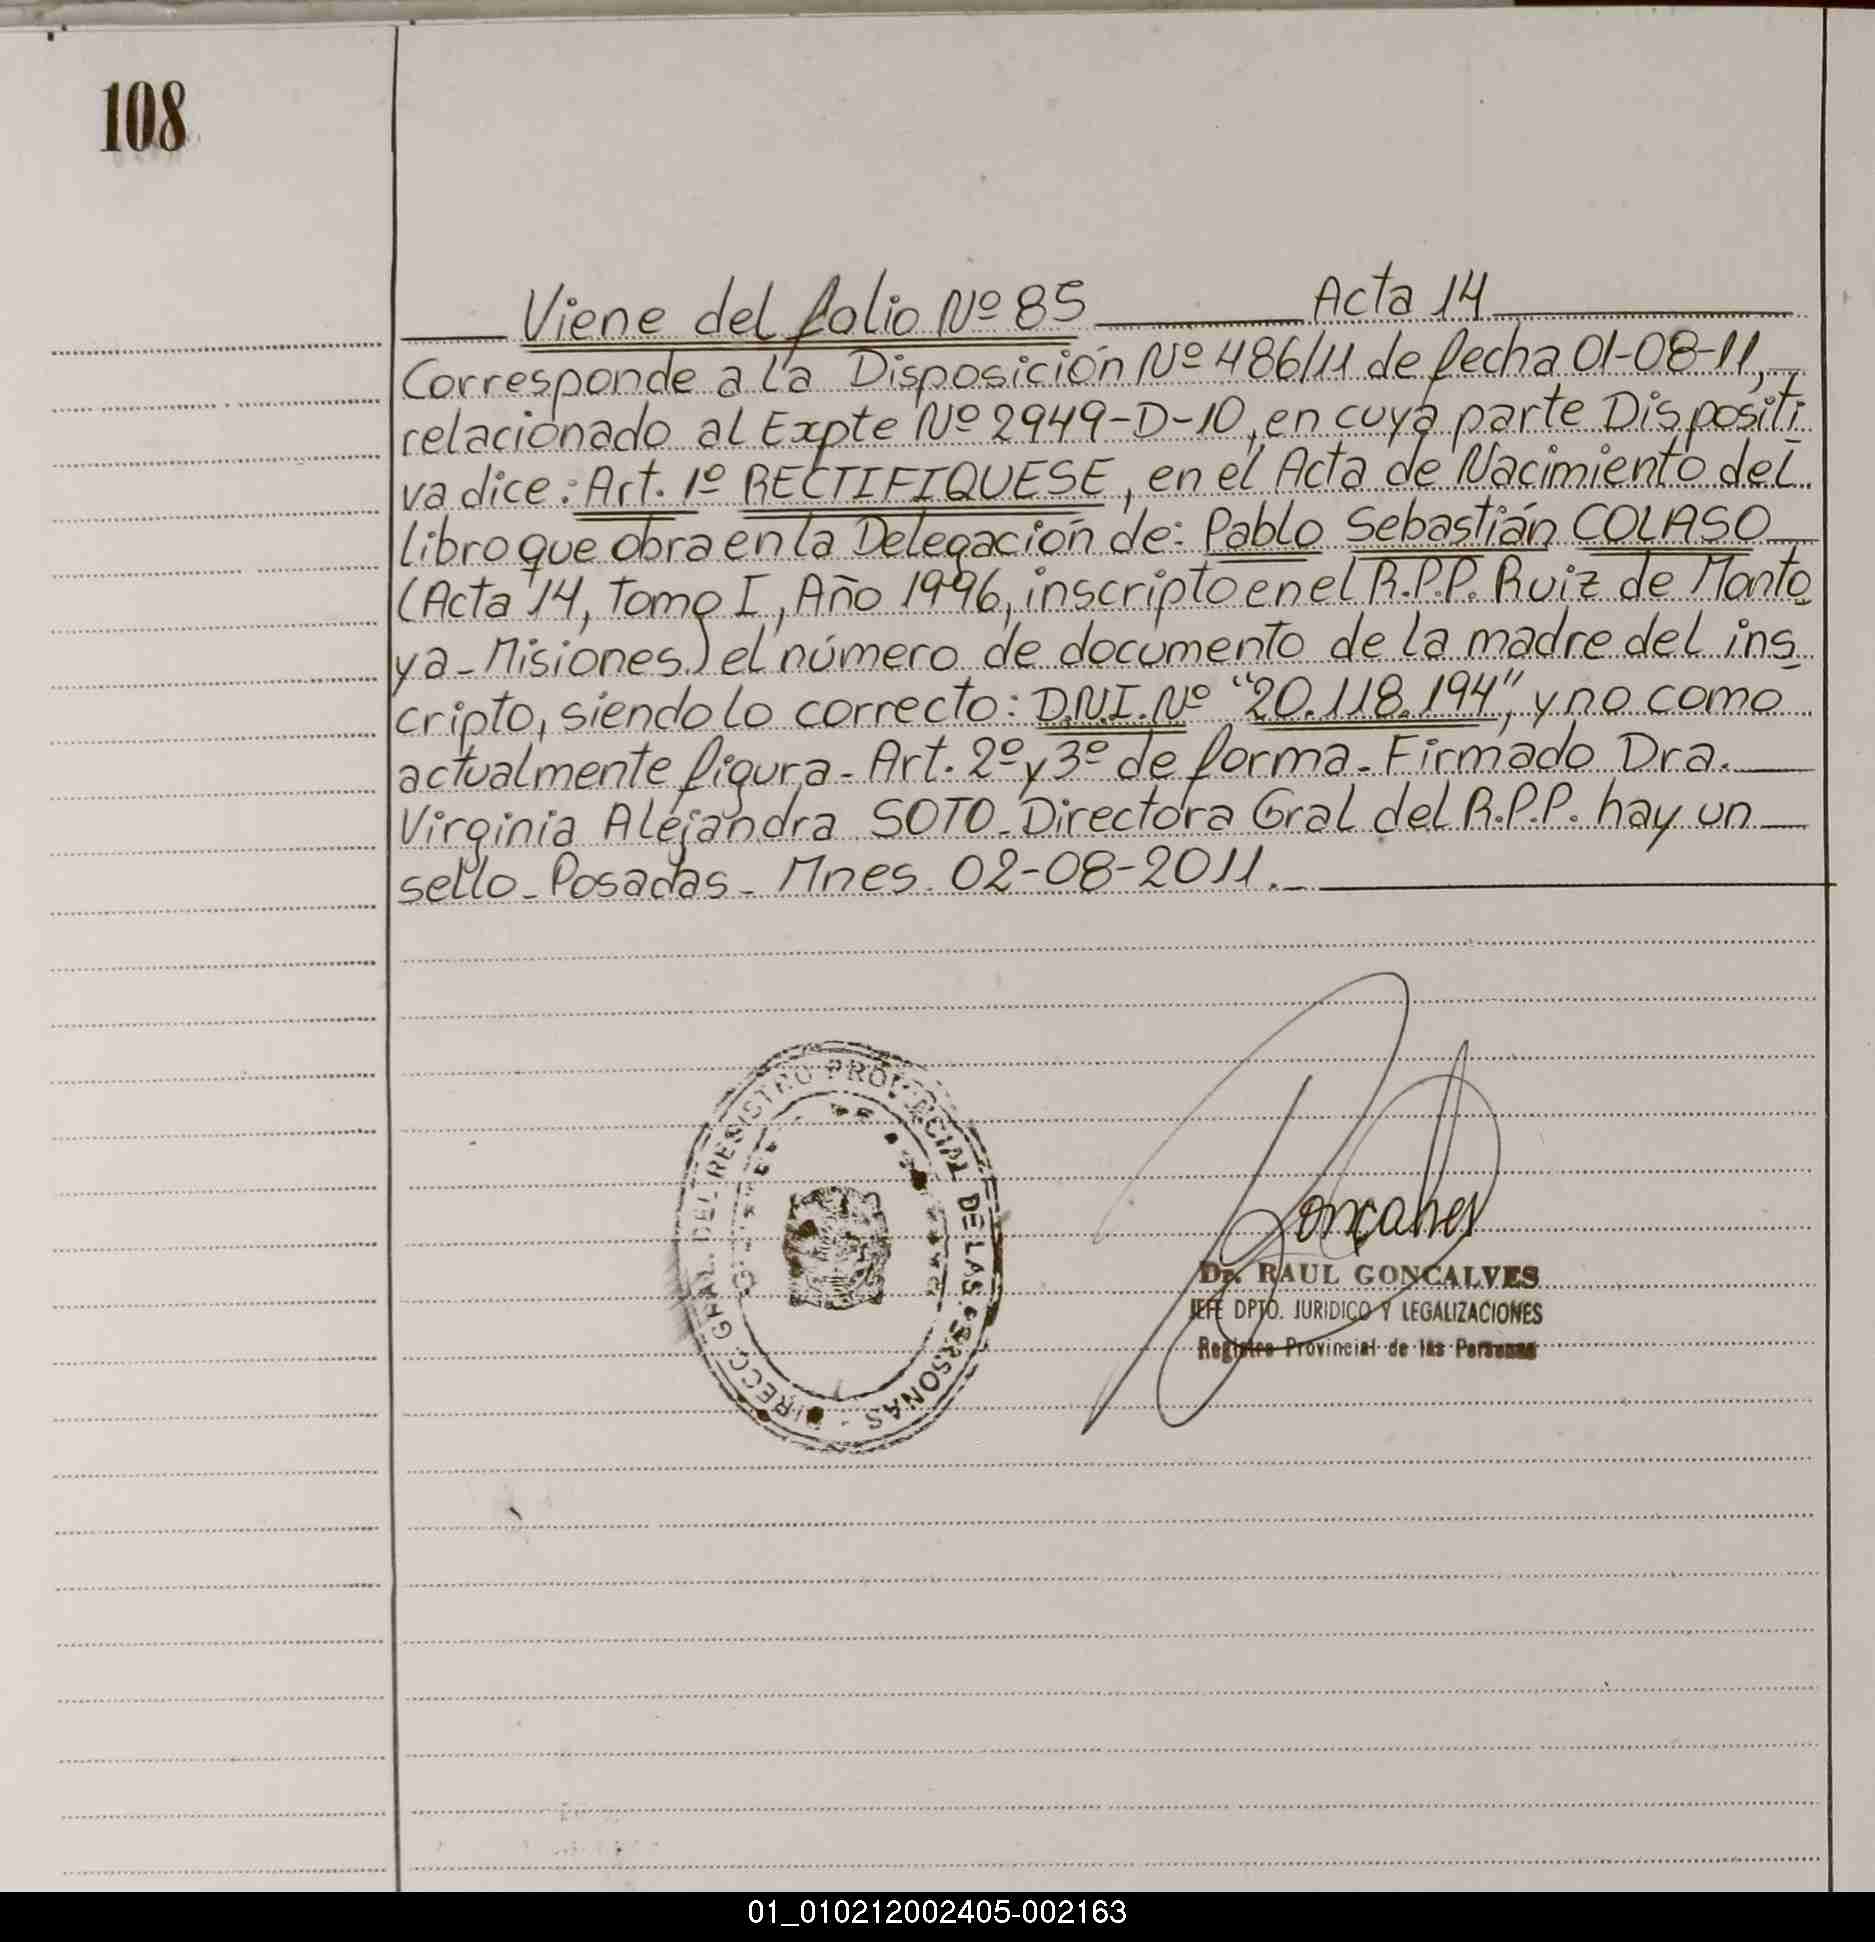 108
Viene del folio Nº 85 Acta 14
Corresponde a la Disposición Nº 486/11 de fecha 01-08-11,
relacionado al Expte Nº 2949-D-10, en cuya parte Dispositi
va dice: Art. 1º RECTIFIQUESE, en el Acta de Nacimiento del
libro que obra en la Delegación de: Pablo Sebastián COLASO
(Acta 14, Tomo I, Año 1996, inscripto en el R.P.P. Ruiz de Monto
ya - Misiones) el número de documento de la madre del ins
cripto, siendo lo correcto: D.N.I. Nº "20.118.194", y no como
actualmente figura - Art. 2º y 3º de forma - Firmado Dra.
Virginia Alejandra SOTO - Directora Gral del R.P.P. hay un
sello - Posadas - Mnes. 02-08-2011.-
DIRECC. GRAL. DEL REGISTRO PROVINCIAL DE LAS PERSONAS -
Goncalves
Dr. RAUL GONCALVES
JEFE DPTO. JURIDICO Y LEGALIZACIONES
Registro Provincial de las Personas
01_010212002405-002163